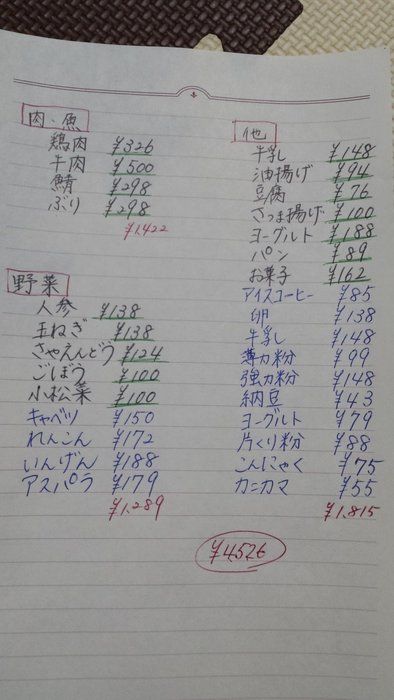 肉・魚
鶏肉 ¥326
牛肉 ¥500
鯖 ¥298
ぶり ¥298
¥1,422
野菜
人参 ¥138
玉ねぎ ¥138
さやえんどう ¥124
ごぼう ¥100
小松菜 ¥100
キャベツ ¥150
れんこん ¥172
いんげん ¥188
アスパラ ¥179
¥1,289
他
牛乳 ¥148
油揚げ ¥94
豆腐 ¥76
さつま揚げ ¥100
ヨーグルト ¥188
パン ¥89
お菓子 ¥162
アイスコーヒー ¥85
卵 ¥138
牛乳 ¥148
薄力粉 ¥99
強力粉 ¥148
納豆 ¥43
ヨーグルト ¥79
片くり粉 ¥88
こんにゃく ¥75
カニカマ ¥55
¥1,815
¥4,526